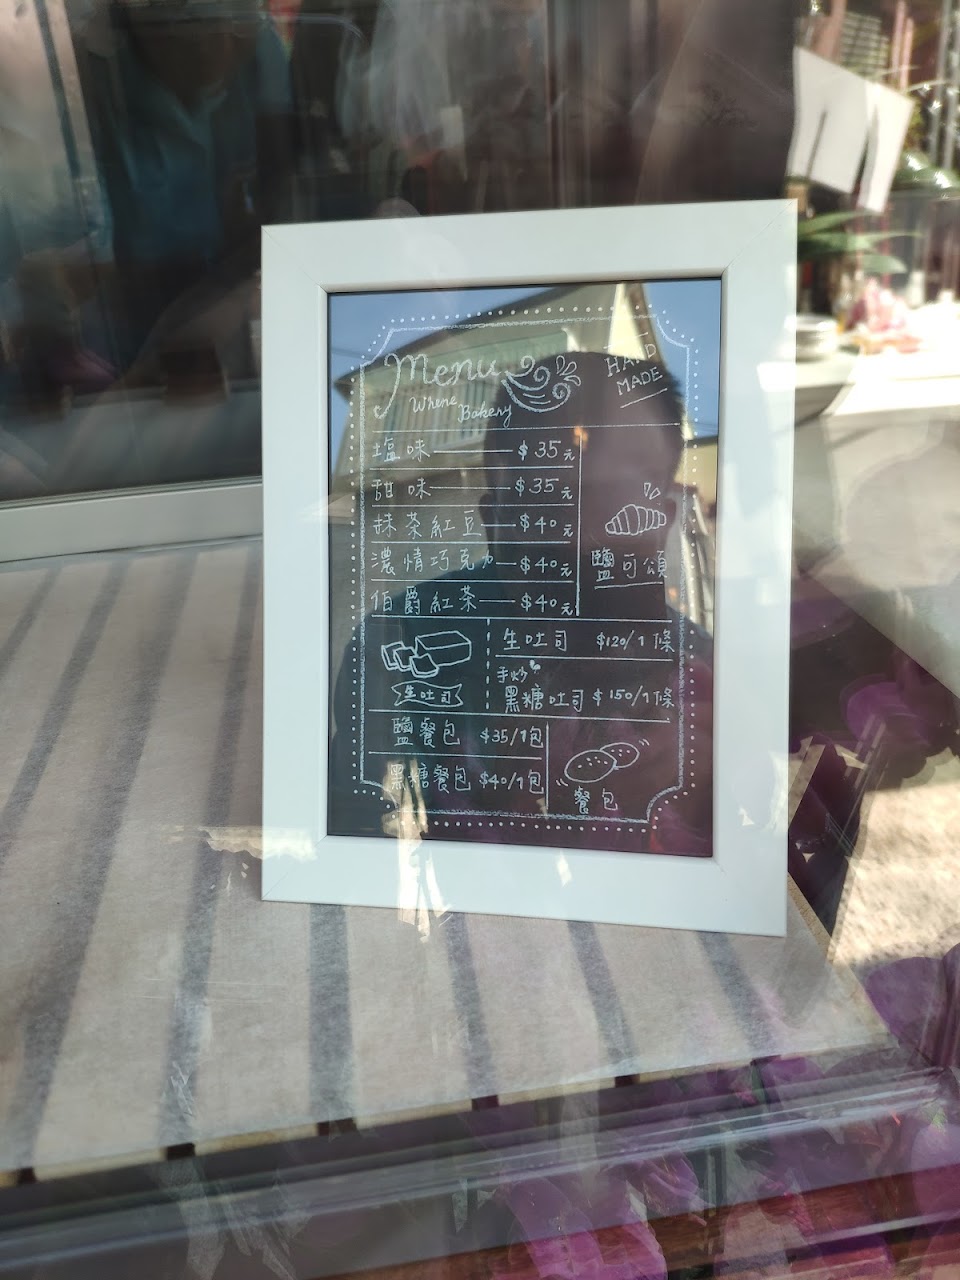 Menu
Whene Bakery
HAND
MADE
塩味 $35元
甜味 $35元
抹茶紅豆 $40元
濃情巧克力 $40元
伯爵紅茶 $40元
鹽可頌
生吐司 $120/1條
手炒
黑糖吐司 $150/1條
生吐司
鹽餐包 $35/1包
黑糖餐包 $40/1包
餐包